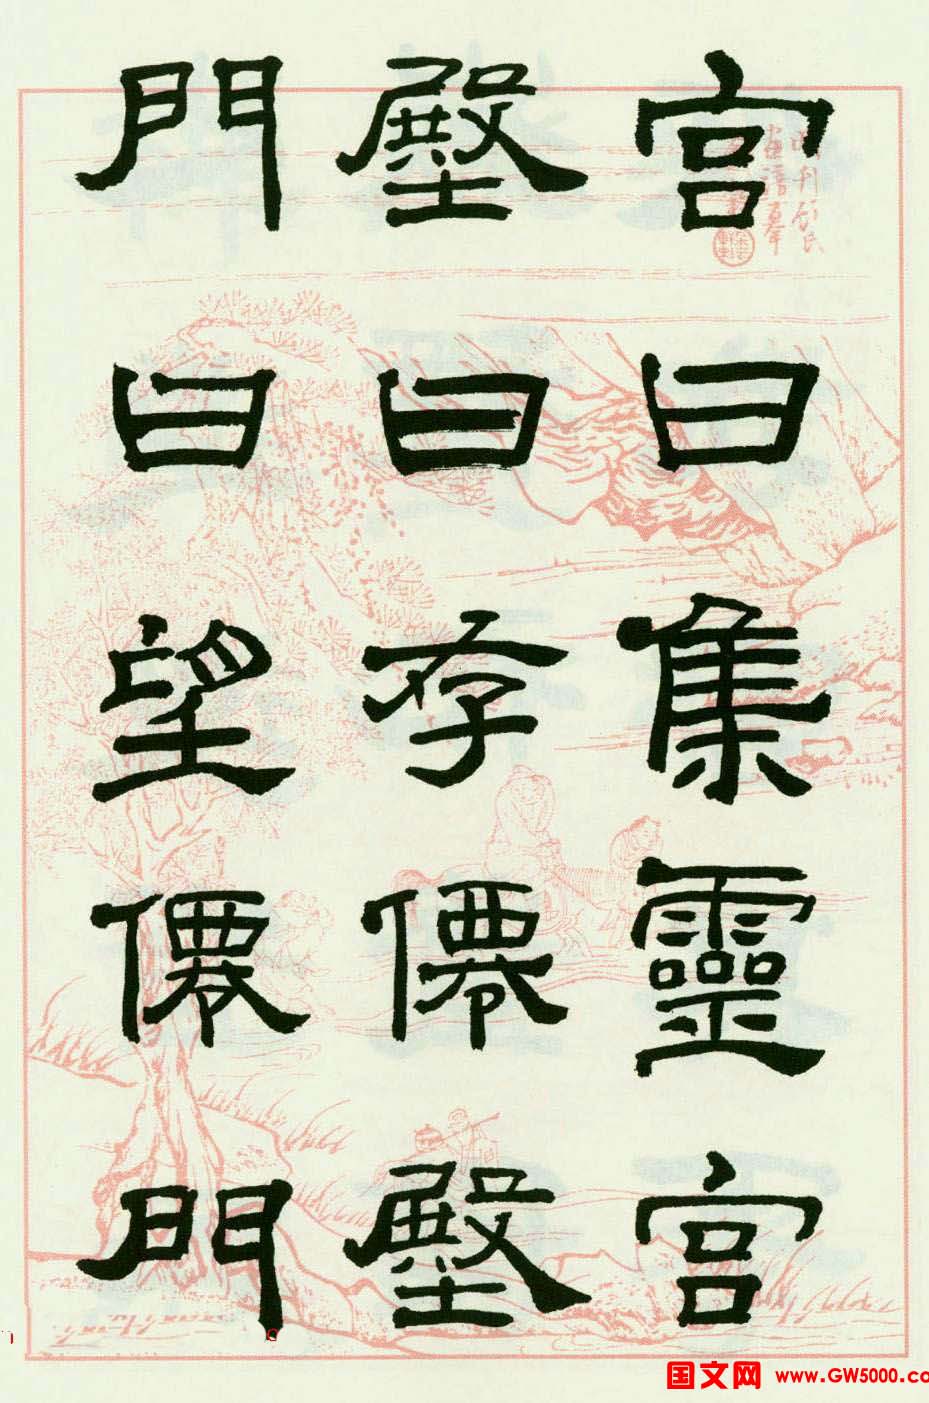 宫曰集靈宫
壂曰存僊壂
門曰望僊門
国文网 www.GW5000.co